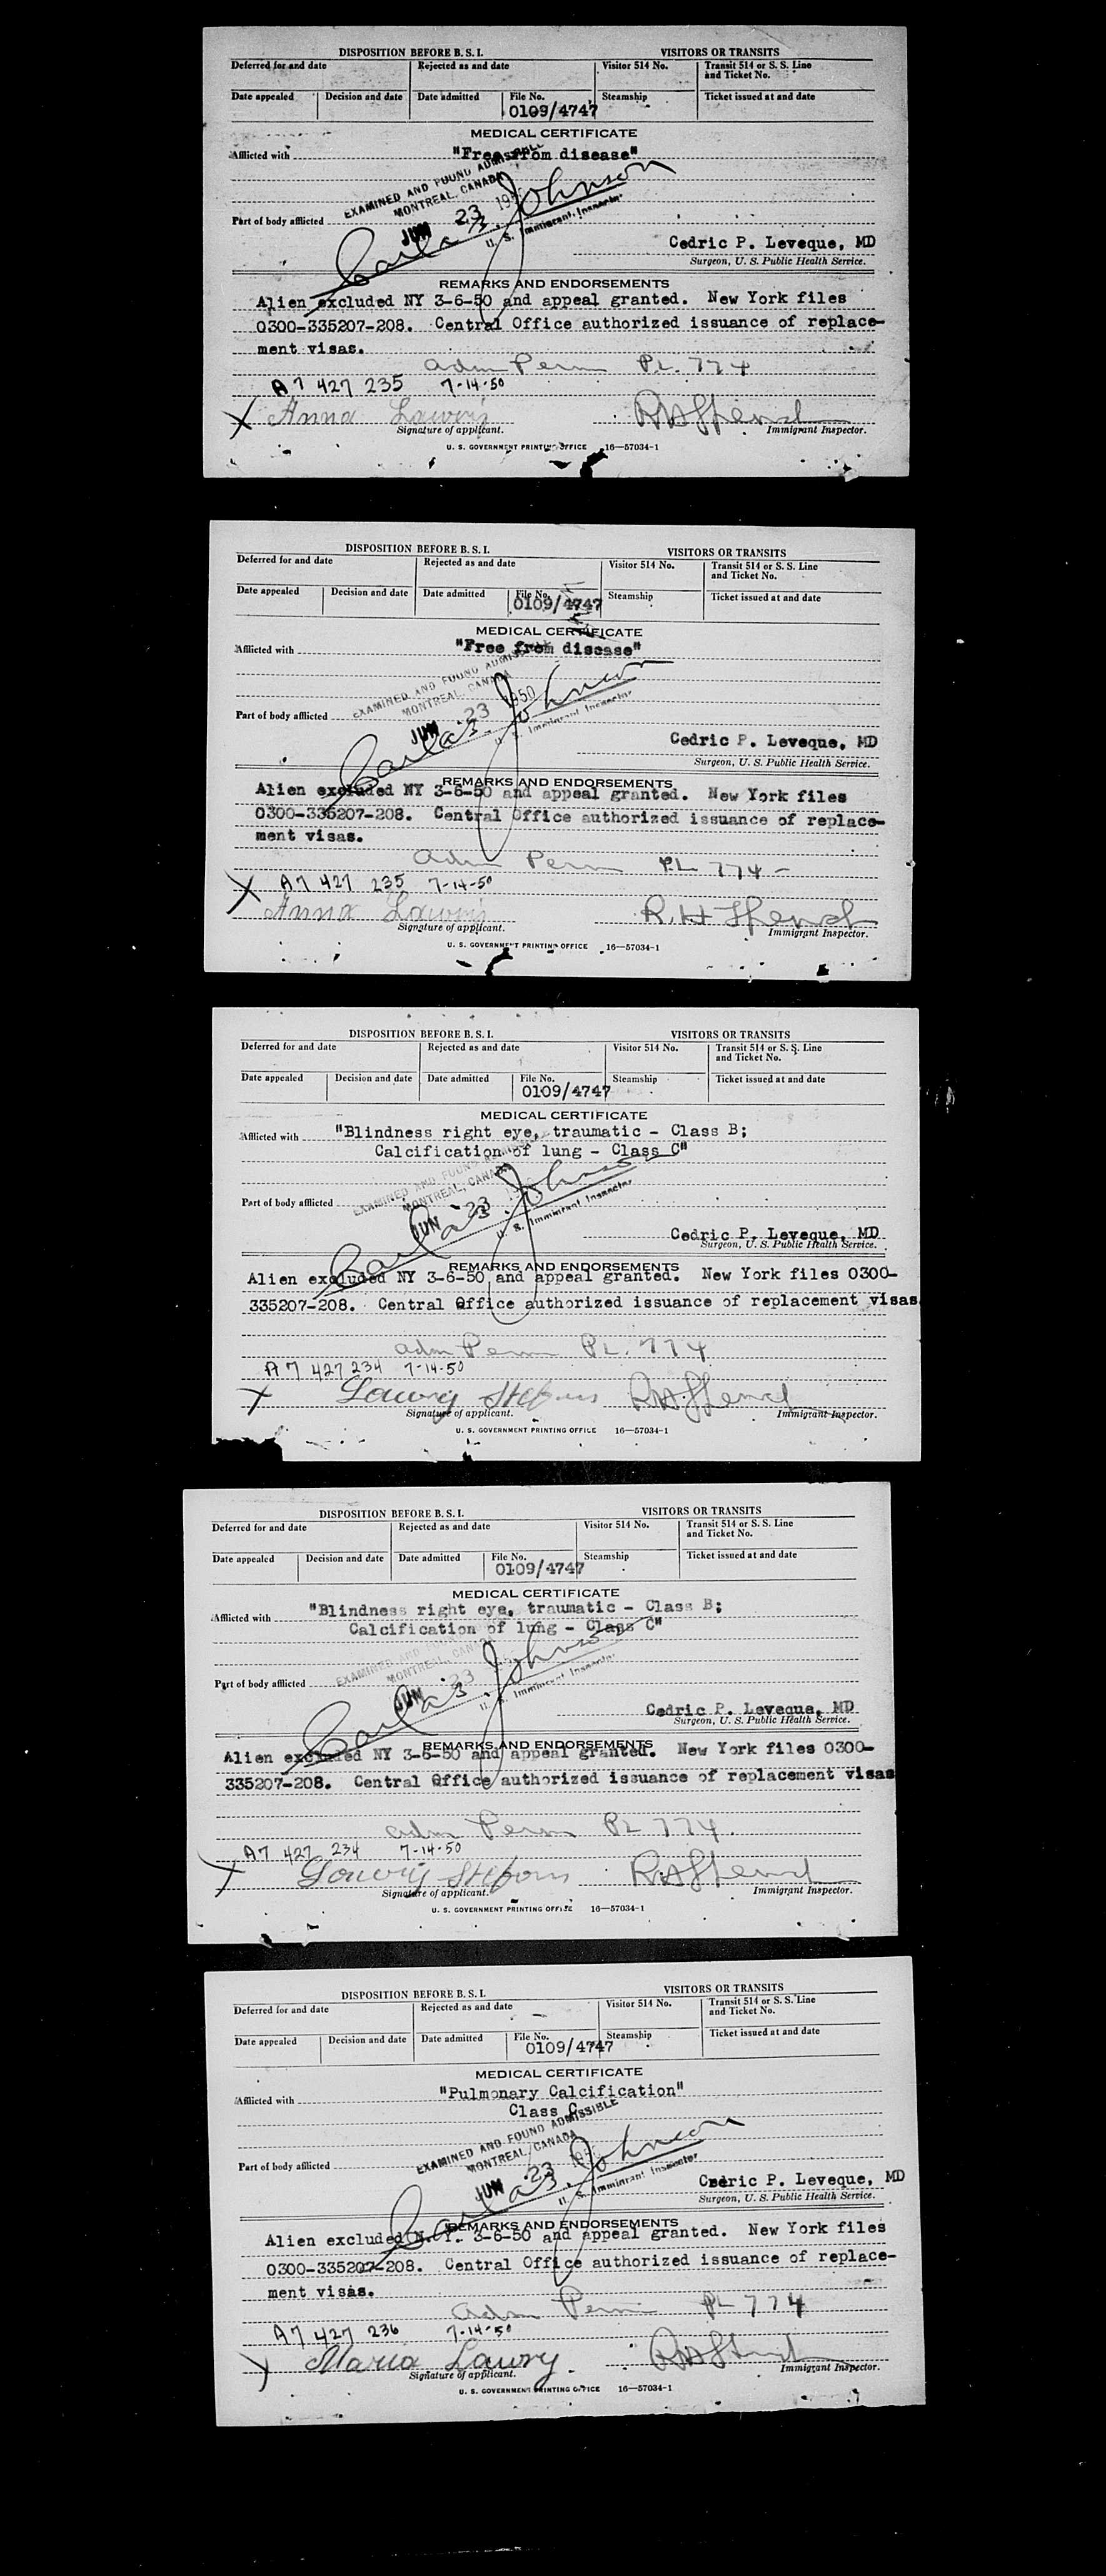 DISPOSITION BEFORE B. S. I. VISITORS OR TRANSITS
Deferred for and date Rejected as and date Visitor 514 No. Transit 514 or S. S. Line and Ticket No.
Date appealed Decision and date Date admitted File No. Steamship Ticket issued at and date
0109/4747
MEDICAL CERTIFICATE
Afflicted with "Free from disease"
EXAMINED AND FOUND ADMISSIBLE
MONTREAL, CANADA
JUN 23 1950
Carl a. Johnson
U. S. Immigrant Inspector
Part of body afflicted
Cedric P. Leveque, MD
Surgeon, U. S. Public Health Service.
REMARKS AND ENDORSEMENTS
Alien excluded NY 3-6-50 and appeal granted. New York files
0300-335207-208. Central Office authorized issuance of replace-
ment visas.
adm Perm PL. 774
A7 427 235 7-14-50
X Anna
Signature of applicant. Immigrant Inspector.
U. S. GOVERNMENT PRINTING OFFICE 16—57034-1
DISPOSITION BEFORE B. S. I. VISITORS OR TRANSITS
Deferred for and date Rejected as and date Visitor 514 No. Transit 514 or S. S. Line and Ticket No.
Date appealed Decision and date Date admitted File No. Steamship Ticket issued at and date
0109/4747
MEDICAL CERTIFICATE
Afflicted with "Free from disease"
EXAMINED AND FOUND ADMISSIBLE
MONTREAL, CANADA
JUN 23 1950
Carl a. Johnson
U. S. Immigrant Inspector
Part of body afflicted
Cedric P. Leveque, MD
Surgeon, U. S. Public Health Service.
REMARKS AND ENDORSEMENTS
Alien excluded NY 3-6-50 and appeal granted. New York files
0300-335207-208. Central Office authorized issuance of replace-
ment visas.
adm Perm PL 774 -
A7 427 235 7-14-50
X Anna R. H.
Signature of applicant. Immigrant Inspector.
U. S. GOVERNMENT PRINTING OFFICE 16—57034-1
DISPOSITION BEFORE B. S. I. VISITORS OR TRANSITS
Deferred for and date Rejected as and date Visitor 514 No. Transit 514 or S. S. Line and Ticket No.
Date appealed Decision and date Date admitted File No. Steamship Ticket issued at and date
0109/4747
MEDICAL CERTIFICATE
Afflicted with "Blindness right eye, traumatic - Class B;
Calcification of lung - Class C"
EXAMINED AND FOUND ADMISSIBLE
MONTREAL, CANADA
JUN 23
Carl a. Johnson
U. S. Immigrant Inspector
Part of body afflicted
Cedric P. Leveque, MD
Surgeon, U. S. Public Health Service.
REMARKS AND ENDORSEMENTS
Alien excluded NY 3-6-50 and appeal granted. New York files 0300-
335207-208. Central Office authorized issuance of replacement visas
adm Perm PL. 774
A7 427 234 7-14-50
X
Signature of applicant. Immigrant Inspector.
U. S. GOVERNMENT PRINTING OFFICE 16—57034-1
DISPOSITION BEFORE B. S. I. VISITORS OR TRANSITS
Deferred for and date Rejected as and date Visitor 514 No. Transit 514 or S. S. Line and Ticket No.
Date appealed Decision and date Date admitted File No. Steamship Ticket issued at and date
0109/4747
MEDICAL CERTIFICATE
Afflicted with "Blindness right eye, traumatic - Class B;
Calcification of lung - Class C"
EXAMINED AND FOUND
MONTREAL, CANADA
JUN 23
Carl a. Johnson
U. S. Immigrant Inspector
Part of body afflicted
Cedric P. Leveque, MD
Surgeon, U. S. Public Health Service.
REMARKS AND ENDORSEMENTS
Alien excluded NY 3-6-50 and appeal granted. New York files 0300-
335207-208. Central Office authorized issuance of replacement visas
adm Perm PL 774.
A7 427 234 7-14-50
X
Signature of applicant. Immigrant Inspector.
U. S. GOVERNMENT PRINTING OFFICE 16—57034-1
DISPOSITION BEFORE B. S. I. VISITORS OR TRANSITS
Deferred for and date Rejected as and date Visitor 514 No. Transit 514 or S. S. Line and Ticket No.
Date appealed Decision and date Date admitted File No. Steamship Ticket issued at and date
0109/4747
MEDICAL CERTIFICATE
Afflicted with "Pulmonary Calcification"
Class C
EXAMINED AND FOUND ADMISSIBLE
MONTREAL, CANADA
JUN 23
Carl a. Johnson
U. S. Immigrant Inspector
Part of body afflicted
Cedric P. Leveque, MD
Surgeon, U. S. Public Health Service.
REMARKS AND ENDORSEMENTS
Alien excluded N. Y. 3-6-50 and appeal granted. New York files
0300-335207-208. Central Office authorized issuance of replace-
ment visas.
adm Perm PL 774
A7 427 236 7-14-50
X Maria Lawry
Signature of applicant. Immigrant Inspector.
U. S. GOVERNMENT PRINTING OFFICE 16—57034-1